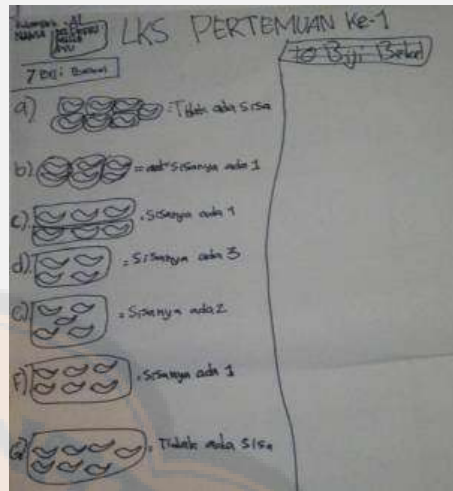 LKS PERTEMUAN Ke-1
NAMA
AYU
7 Biji Bekel
10 Biji Bekel
a) = Tidak ada sisa
b) = sisanya ada 1
c) = Sisanya ada 1
d) = Sisanya ada 3
e) = Sisanya ada 2
F) = Sisanya ada 1
G) = Tidak ada sisa